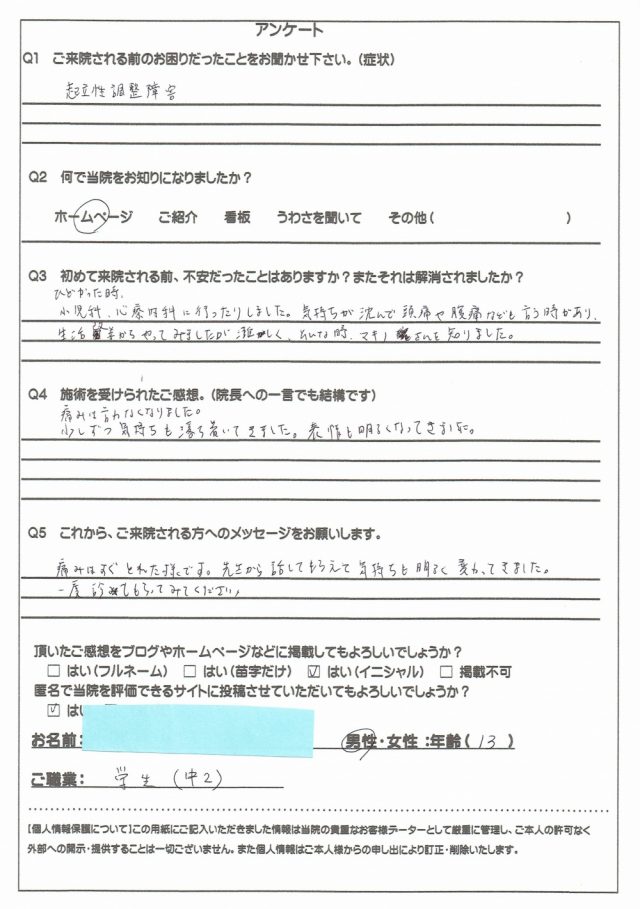 アンケート
Q1 ご来院される前のお困りだったことをお聞かせ下さい。(症状)
起立性調整障害
Q2 何で当院をお知りになりましたか？
ホームページ ご紹介 看板 うわさを聞いて その他( )
Q3 初めて来院される前、不安だったことはありますか？またそれは解消されましたか？
ひどかった時、
小児科、心療内科に行ったりしました。気持ちが沈んで頭痛や腹痛なども言う時があり、
生活 からやってみましたが難しく、そんな時、マキノ さんを知りました。
Q4 施術を受けられたご感想。(院長への一言でも結構です)
痛みは言わなくなりました。
少しずつ気持ちも落ち着いてきました。表情も明るくなってきました。
Q5 これから、ご来院される方へのメッセージをお願いします。
痛みはすぐとれた様です。先生から話してもらえて気持ちも明るく変わってきました。
一度診てもらってみてください
頂いたご感想をブログやホームページなどに掲載してもよろしいでしょうか？
□ はい(フルネーム) □ はい(苗字だけ) ☑ はい(イニシャル) □ 掲載不可
匿名で当院を評価できるサイトに投稿させていただいてもよろしいでしょうか？
☑ はい
お名前： 男性・女性 ：年齢( 13 )
ご職業： 学生 (中2)
【個人情報保護について】この用紙にご記入いただきました情報は当院の貴重なお客様データーとして厳重に管理し、ご本人の許可なく
外部への開示・提供することは一切ございません。また個人情報はご本人様からの申し出により訂正・削除いたします。